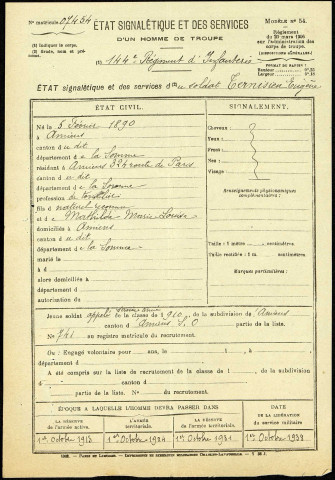 No matricule 07454
ÉTAT SIGNALÉTIQUE ET DES SERVICES
D'UN HOMME DE TROUPE
Modèle no 54.
(1) Indiquer le corps.
(2) Grade, nom et prénoms.
(1) 144e Régiment d'Infanterie
Règlement
du 20 mars 1906
sur l'administration des
corps de troupe.
FORMAT DU PAPIER :
Hauteur
Largeur
ÉTAT signalétique et des services du soldat Eugène
ÉTAT CIVIL.
Né le 5 Février 1890
à Amiens
canton du dit
département de la Somme
résidant à Amiens 326 route de Paris
canton du dit
département de la Somme
profession de
fils de naturel reconnu
et de Mathilde Marie Louise
domiciliés à Amiens
canton du dit
département de la Somme
marié le
à
alors domiciliée à
département d
autorisation du
SIGNALEMENT.
Cheveux
Yeux
Front
Nez
Visage
Renseignements physionomiques
complémentaires :
Taille : 1 mètre centimètres.
Taille rectifiée : 1 m. centimètres.
Marques particulières :
Jeune soldat appelé de la classe de 1910, de la subdivision de Amiens
canton d Amiens S. O partie de la liste.
No 741 au registre matricule du recrutement.
Ou : Engagé volontaire pour ans, le à
département d
A été compris sur la liste de recrutement de la classe de de la subdivision
d canton d partie de la liste.
No du registre matricule du recrutement.
ÉPOQUE A LAQUELLE L'HOMME DEVRA PASSER DANS
LA RÉSERVE
de l'armée active.
L'ARMÉE
territoriale.
LA RÉSERVE
de l'armée territoriale.
DATE DE LA LIBÉRATION
du service militaire
1er Octobre 1913
1er Octobre 1924
1er Octobre 1931
1er Octobre 1939
PARIS ET LIMOGES. — IMPRIMERIE ET LIBRAIRIE MILITAIRES CHARLES-LAVAUZELLE.